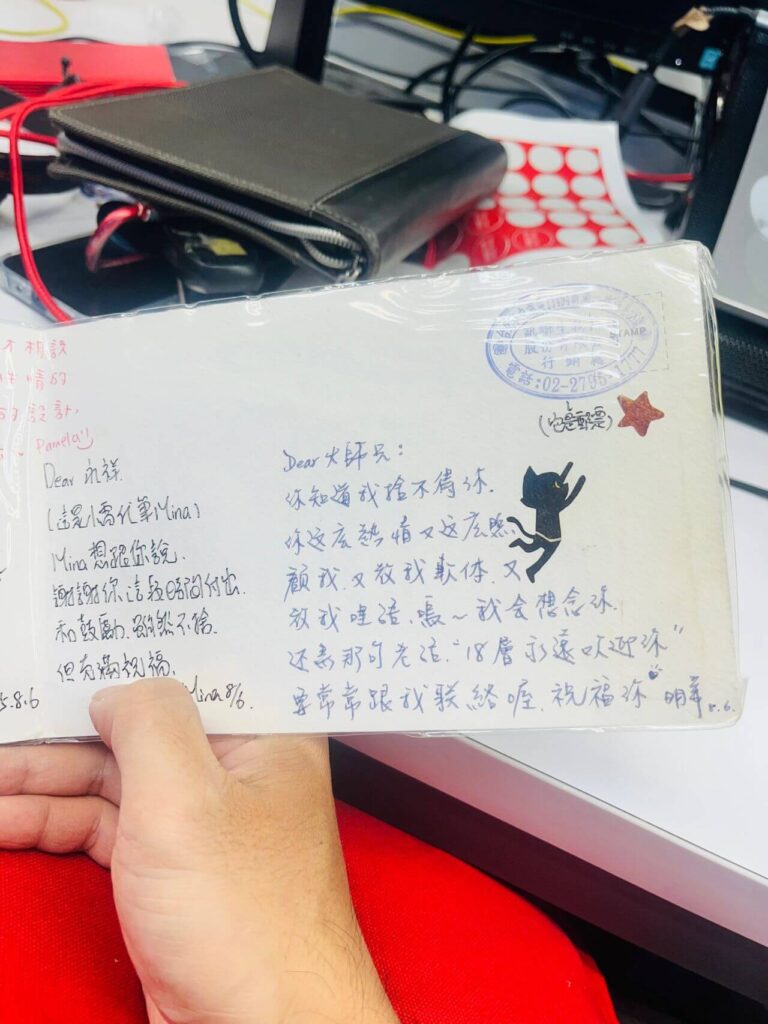 木相設
情的
的設計,
~ Pamela
Dear 永祥.
(這是小喬代筆Mina)
Mina 想跟你說.
謝謝你這段時間付出
和鼓勵. 雖然不捨.
但充滿祝福.
Mina 8/6.
5.8.6
STAMP
股份有限
行銷
電話:02-2795-
(也是郵票)
Dear 大師兄:
你知道我捨不得你.
你这么熱情又这么照
顧我. 又教我軟体. 又
教我 嗚~我会想念你.
还是那句老話. "18層永遠欢迎你"
要常常跟我联絡喔. 祝福你 明華 8.6.